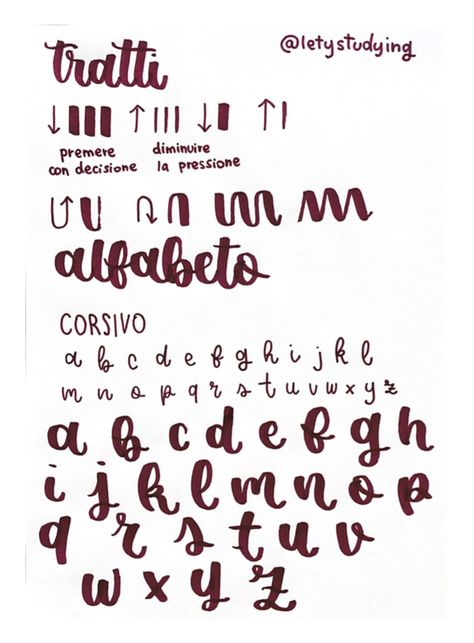 tratti
@letystudying
↓ ↑ ↓ ↑
premere diminuire
con decisione la pressione
alfabeto
CORSIVO
a b c d e f g h i j k l
m n o p q r s t u v w x y z
a b c d e f g h
i j k l m n o p
q r s t u v
w x y z